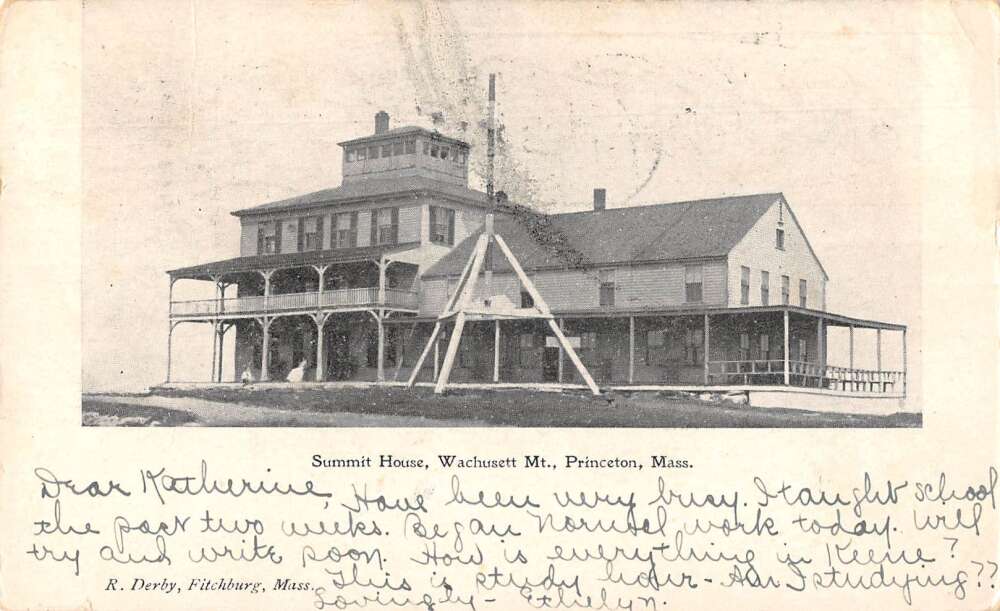 Summit House, Wachusett Mt., Princeton, Mass.
Dear Katherine, Have been very busy. I taught school
the past two weeks. Began Normal work today. Will
try and write soon. How is everything in Keene?
R. Derby, Fitchburg, Mass. This is study hour - Am I studying??
Lovingly - Ethelyn.